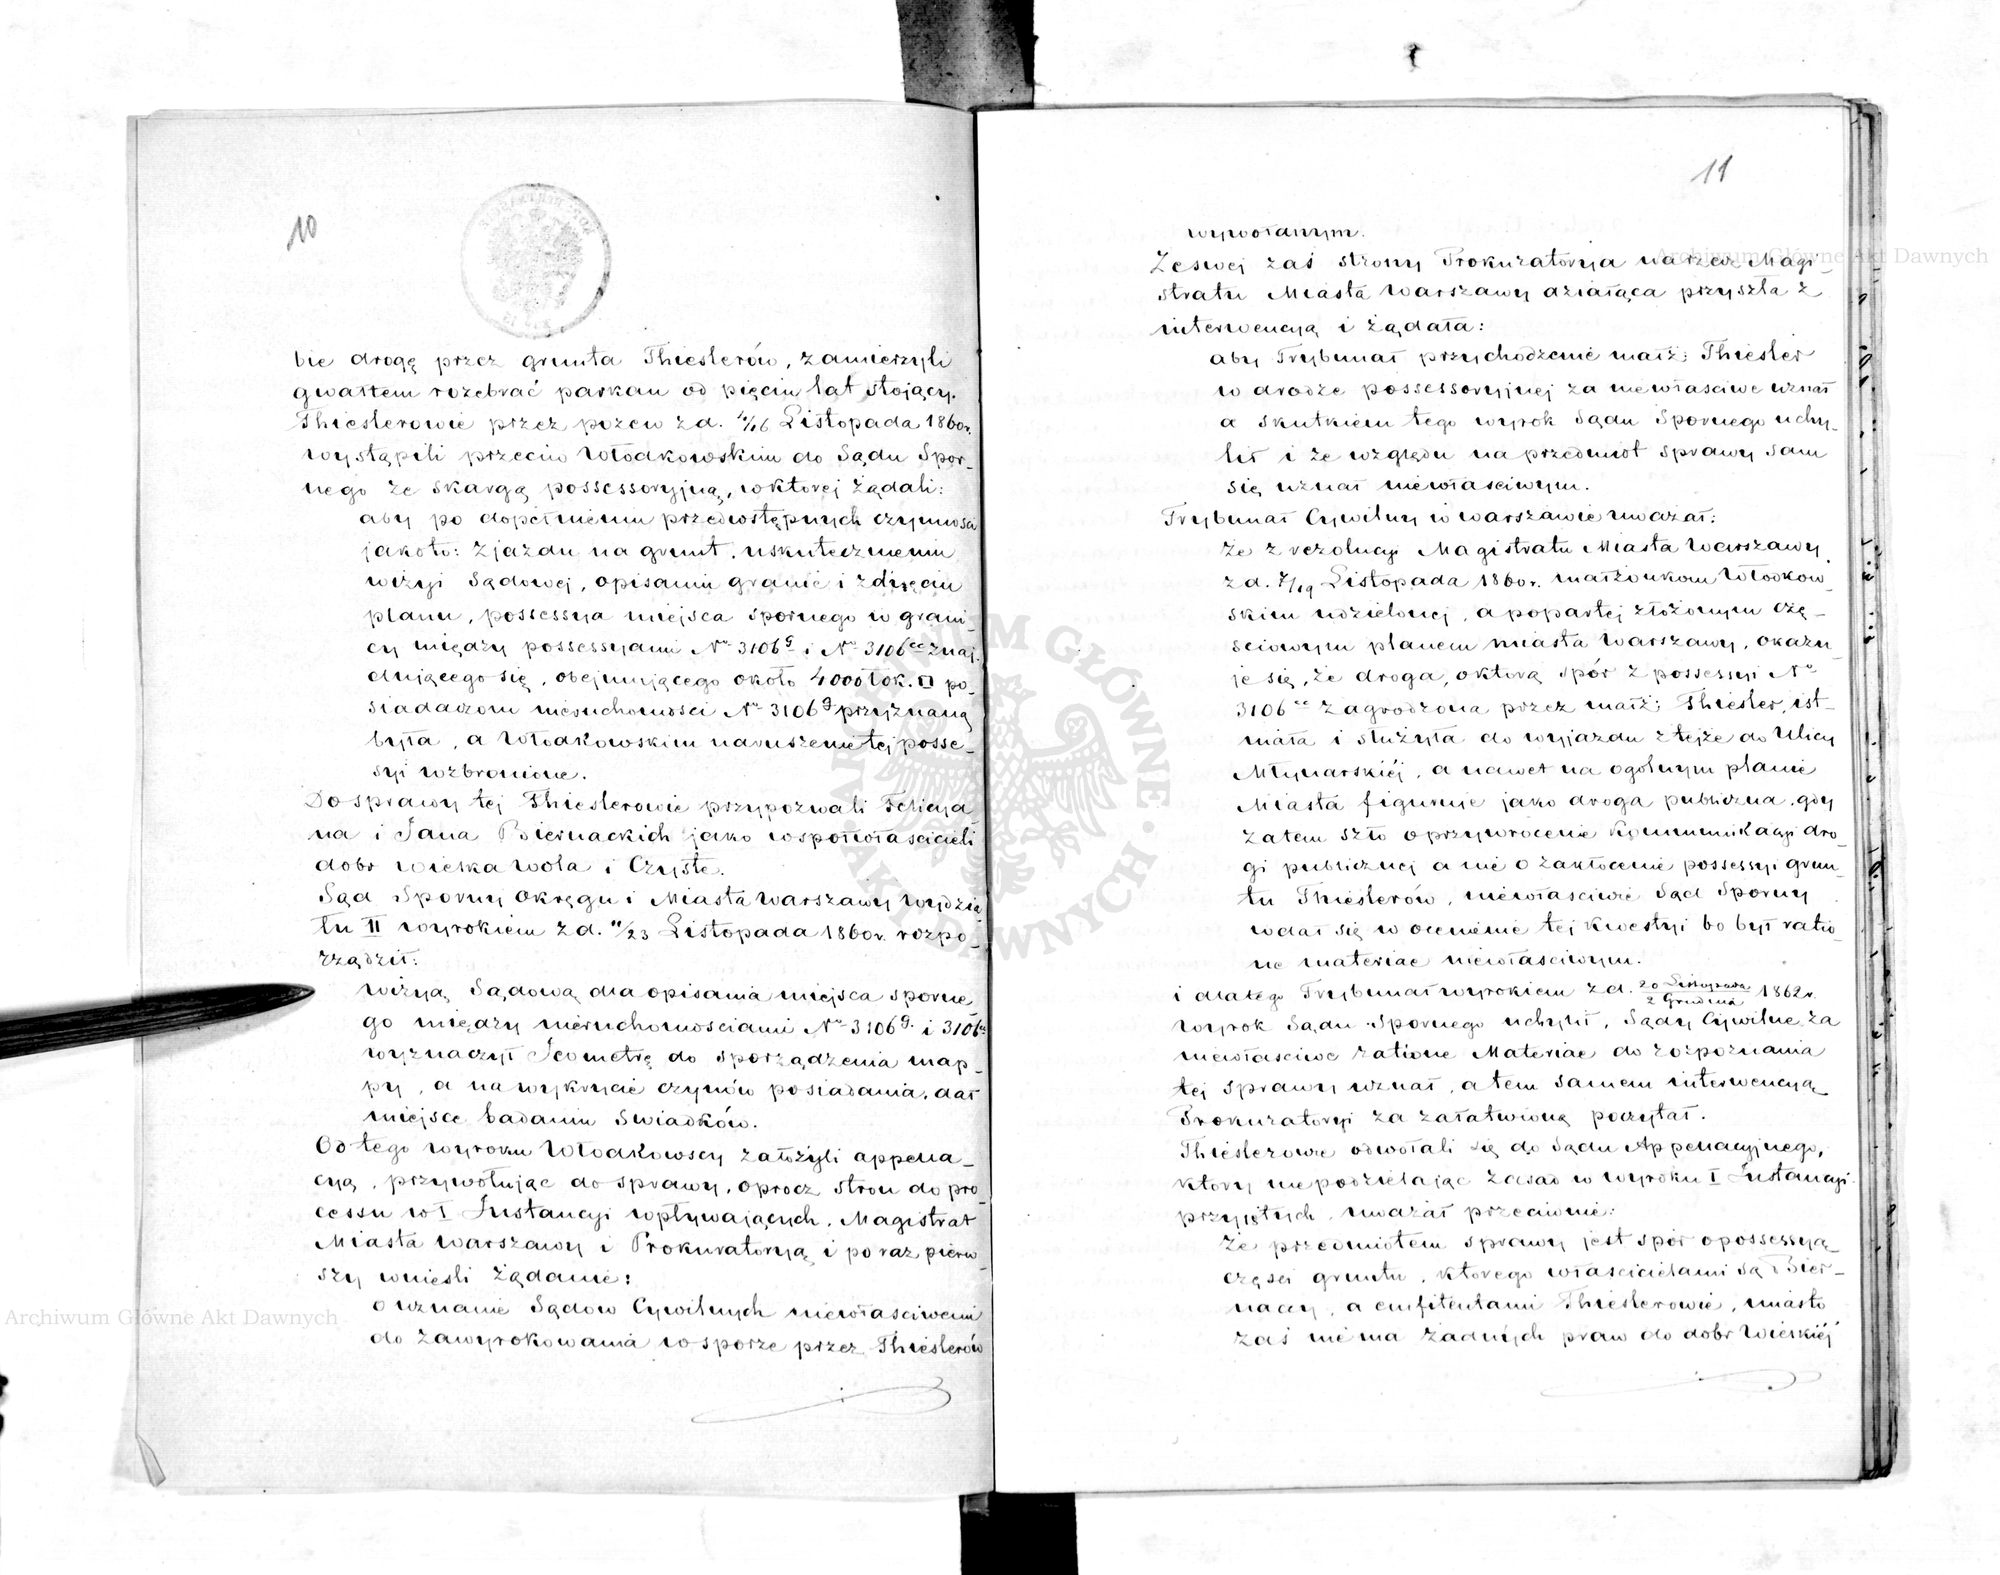 10
bie drogę przez grunta Thieslerów, zamierzyli
gwałtem rozebrać parkan od pięciu lat stojący.
Thieslerowie przez pozew z d. 4/16 Listopada 1860r.
wystąpili przeciw Włodkowskim do Sądu Spor-
nego ze skargą possessoryjną, w której żądali:
aby po dopełnieniu przedwstępnych czynności
jakoto: zjazdu na grunt, uskutecznieniu
wizyi Sądowej, opisaniu granic i zdjęciu
planu, possessya miejsca spornego w grani-
cy między possessyami No 3106g i No 3106cc znaj-
dującego się, obejmującego około 4000 łok. □ po-
siadaczom nieruchomości No 3106g przyznaną
była, a Włodkowskim naruszenie tej posse-
syi wzbronione.
Do sprawy tej Thieslerowie przypozwali Felicya-
na i Jana Biernackich jako współwłaścicieli
dobr Wielka Wola i Czyste.
Sąd Sporny Okręgu i Miasta Warszawy Wydzia-
łu II wyrokiem z d. 11/23 Listopada 1860r. rozpo-
rządził:
wizyą Sądową dla opisania miejsca sporne-
go między nieruchomościami No 3106g. i 3106cc
wyznaczył Jeometrę do sporządzenia map-
py, a na wykrycie czynów posiadania, dał
miejsce badaniu Swiadków.
Od tego wyroku Włodkowscy założyli appella-
cyą, przywołując do sprawy, oprocz stron do pro-
cessu w I Instancyi wpływających, Magistrat
Miasta Warszawy i Prokuratoryą i po raz pierw-
szy wnieśli żądanie:
o uznanie Sądow Cywilnych niewłaściwemi
do zawyrokowania w sporze przez Thieslerów
11
wywołanym.
Ze swej zaś strony Prokuratorya na rzecz Magi-
stratu Miasta Warszawy działąca przyszła z
interwencyą i żądała:
aby Trybunał przychodzenie małż: Thiesler
w drodze possessoryjnej za niewłaściwe uznał
a skutkiem tego wyrok Sądu Spornego uchy-
lił i ze względu na przedmiot sprawy sam
się uznał niewłaściwym.
Trybunał Cywilny w Warszawie uważał:
że z rezolucyi Magistratu Miasta Warszawy
z d. 7/19 Listopada 1860r. małżonkom Włodkow-
skim udzielonej, a popartej złożonym czę-
ściowym planem miasta Warszawy, okazu-
je się, że droga, o którą spór z possessyi No
3106cc zagrodzona przez małż: Thiesler, ist-
niała i służyła do wyjazdu z tejże do Ulicy
Młynarskiéj, a nawet na ogólnym planie
Miasta figuruje jako droga publiczna, gdy
zatem szło o przywrócenie Kommunikacyi dro-
gi publicznej a nie o zakłócenie possessyi grun-
tu Thieslerów, niewłaściwie Sąd Sporny
wdał się w ocenienie tej kwestyi bo był ratio-
ne materiae niewłaściwym.
i dlatego Trybunał wyrokiem z d. 20 Listopada/2 Grudnia 1862r.
wyrok Sądu Spornego uchylił, Sądy Cywilne za
niewłaściwe ratione Materiae do rozpoznania
tej sprawy uznał, a tem samem interwencyą
Prokuratoryi za załatwioną poczytał.
Thieslerowie odwołali się do Sądu Appellacyjnego,
który niepodzielając zasad w wyroku I Instancyi
przyjętych, uważał przeciwnie:
że przedmiotem sprawy jest spór o possessyą
części gruntu, którego właścicielami są Bier-
naccy, a emfiteutami Thieslerowie, miasto
zaś nie ma żadnych praw do dobr Wielkiéj